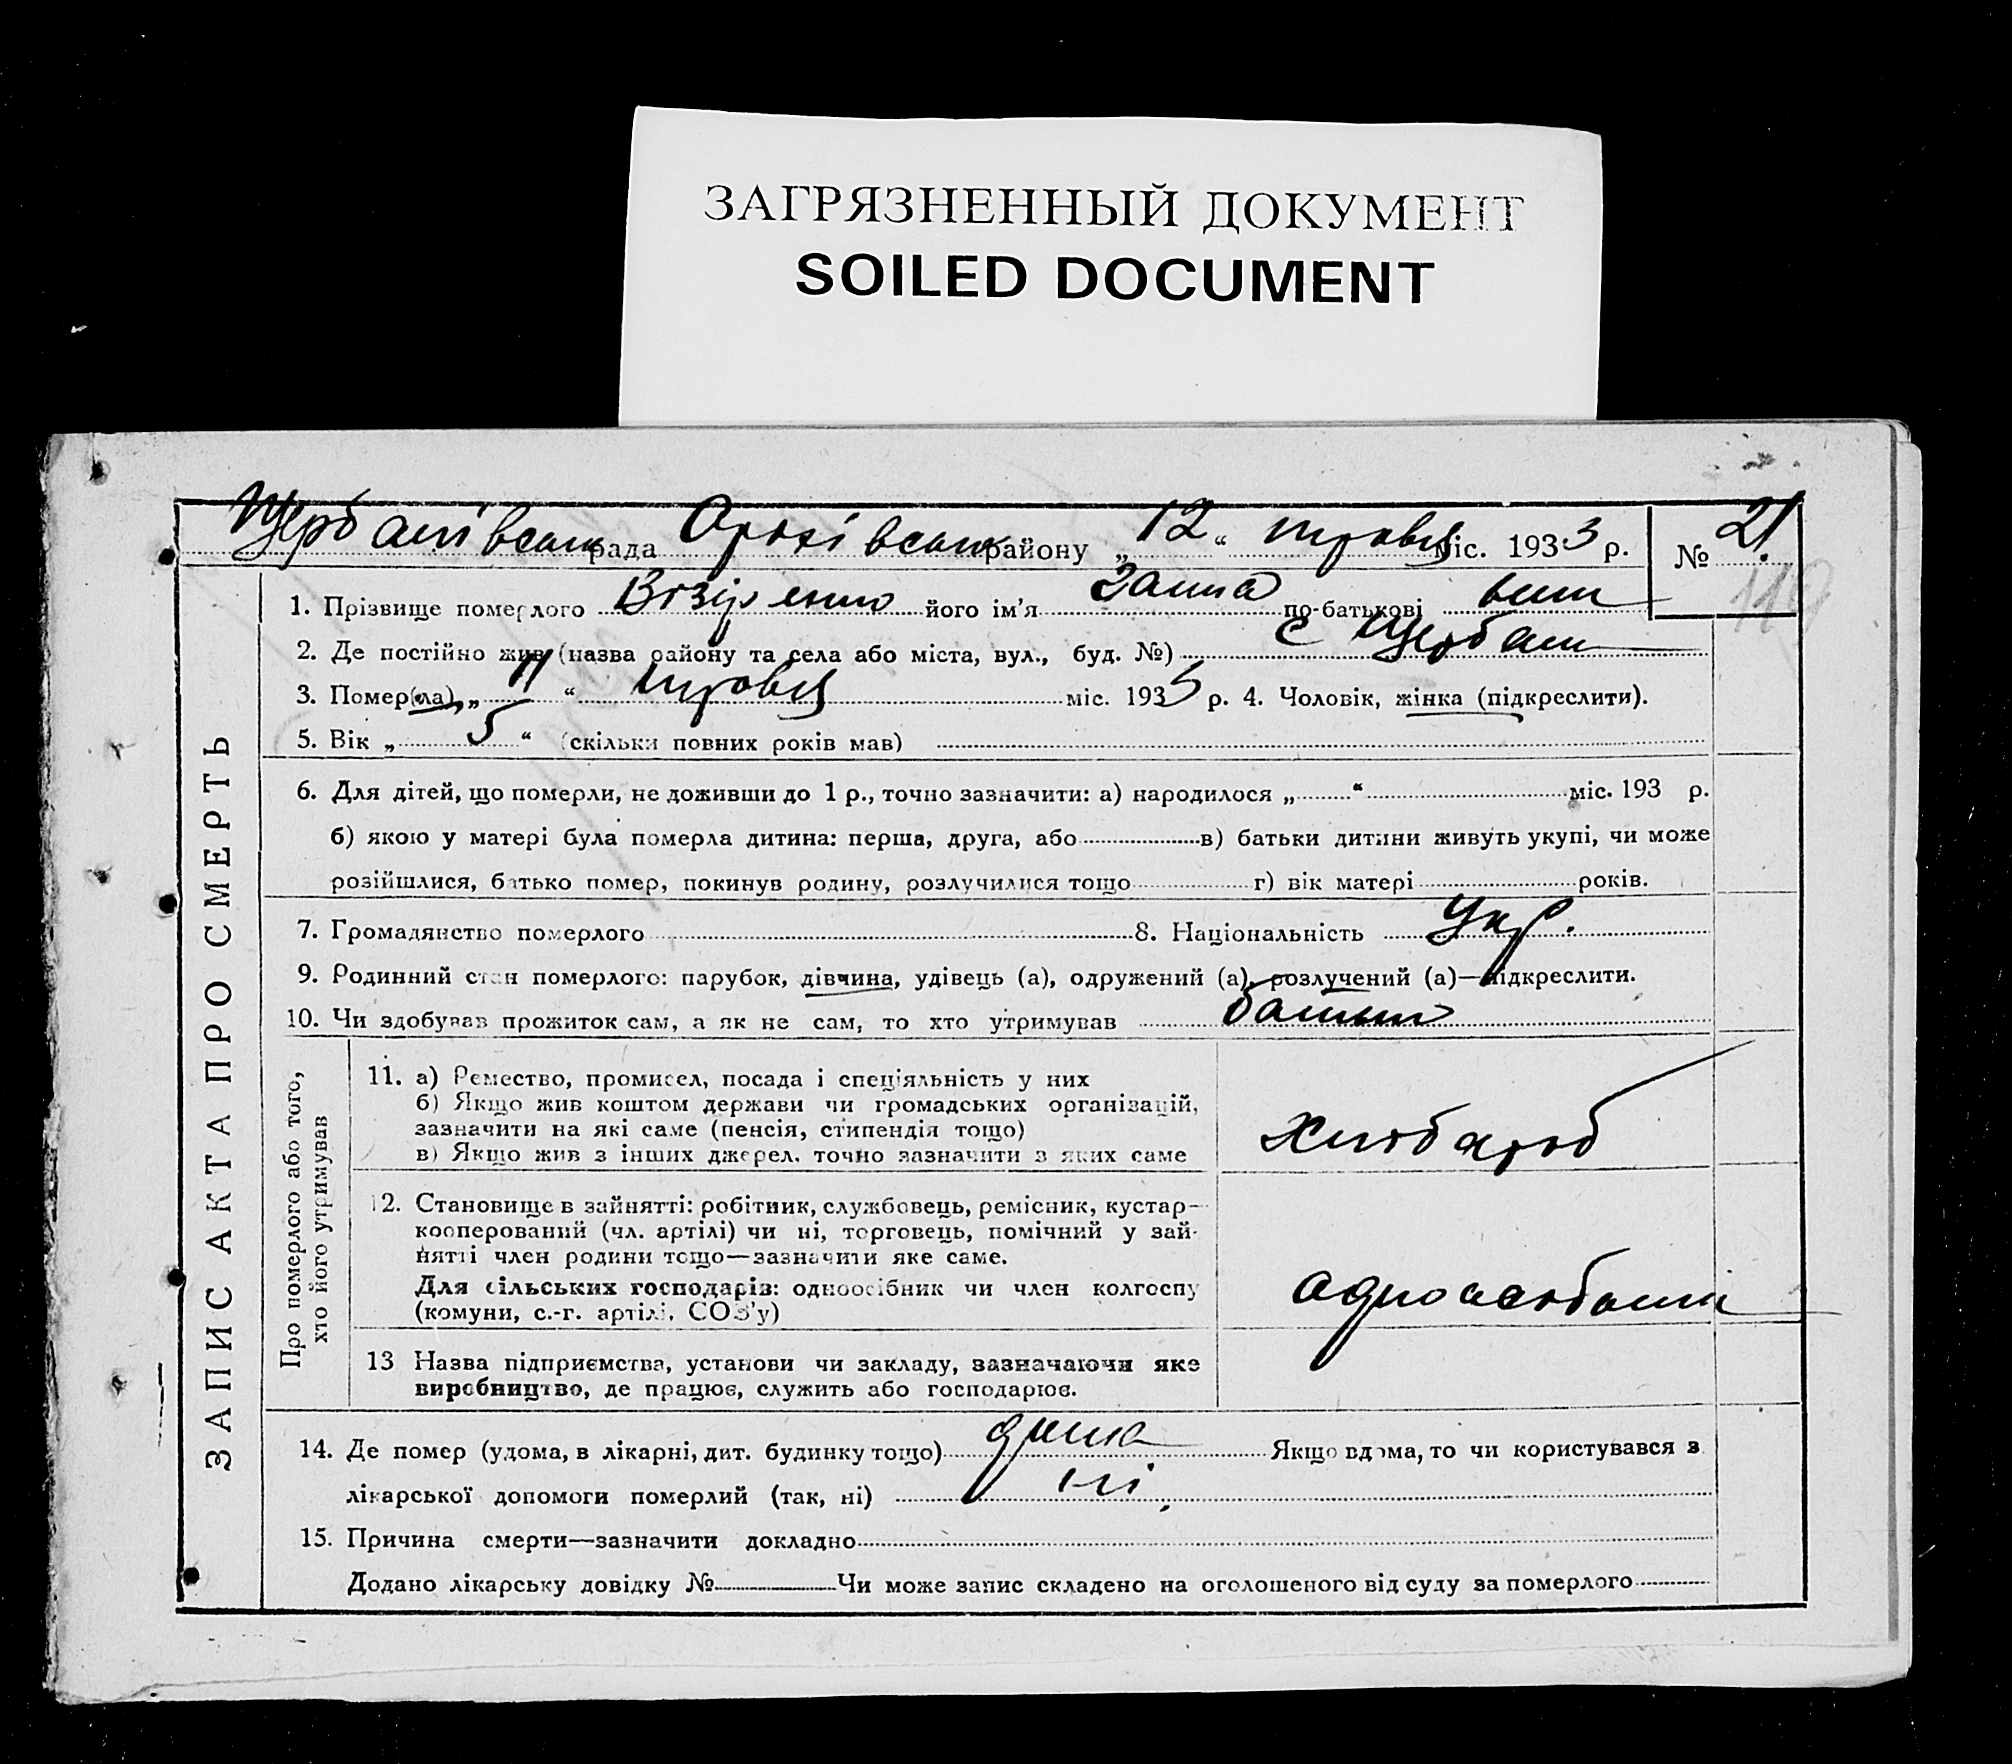 ЗАГРЯЗНЕННЫЙ ДОКУМЕНТ
SOILED DOCUMENT
рада району „12“ травня міс. 1933 р. № 21
119
1. Прізвище померлого його ім'я Ганна по-батькові
2. Де постійно жив (назва району та села або міста, вул., буд. №) с Щербані
3. Помер(ла) „11“ травня міс. 193 р. 4. Чоловік, жінка (підкреслити).
5. Вік „5“ (скільки повних років мав)
6. Для дітей, що померли, не доживши до 1 р., точно зазначити: а) народилося „ “ міс. 193 р.
б) якою у матері була померла дитина: перша, друга, або в) батьки дитини живуть укупі, чи може
розійшлися, батько помер, покинув родину, розлучилися тощо г) вік матері років.
7. Громадянство померлого 8. Національність Укр.
9. Родинний стан померлого: парубок, дівчина, удівець (а), одружений (а), розлучений (а)—підкреслити.
10. Чи здобував прожиток сам, а як не сам, то хто утримував батько
ЗАПИС АКТА ПРО СМЕРТЬ
Про померлого або того,
хто його утримував
11. а) Ремество, промисел, посада і спеціяльність у них
б) Якщо жив коштом держави чи громадських організацій,
зазначити на які саме (пенсія, стипендія тощо)
в) Якщо жив з інших джерел, точно зазначити з яких саме
хлібороб
12. Становище в зайнятті: робітник, службовець, ремісник, кустар—
кооперований (чл. артілі) чи ні, торговець, помічний у зай-
нятті член родини тощо—зазначити яке саме.
Для сільських господарів: одноосібник чи член колгоспу
(комуни, с.-г. артілі, СОЗ'у)
13 Назва підприємства, установи чи закладу, зазначаючи яке
виробництво, де працює, служить або господарює.
14. Де помер (удома, в лікарні, дит. будинку тощо) дома Якщо вдома, то чи користувався з
лікарської допомоги померлий (так, ні) ні
15. Причина смерти—зазначити докладно
Додано лікарську довідку № Чи може запис складено на оголошеного від суду за померлого